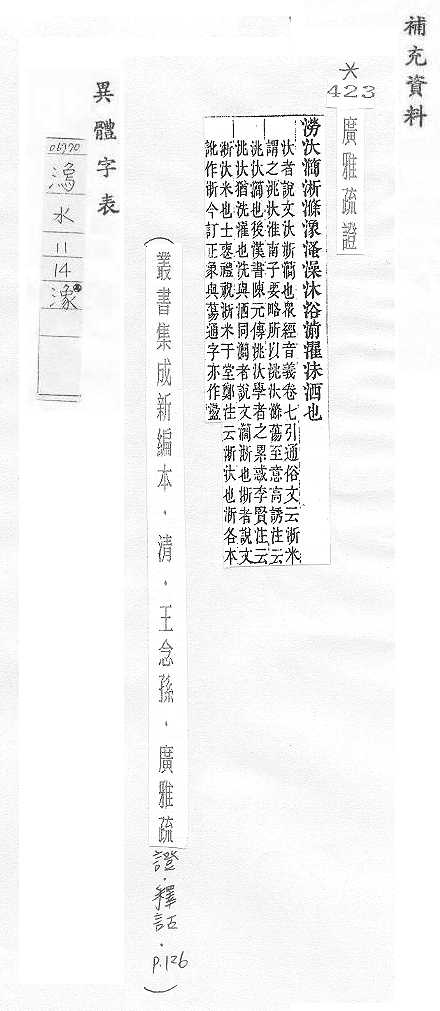 補充資料
*
423
廣雅疏證
澇汏澗淅滌潒滫澡沐浴湔濯沬洒也
汏者說文汏淅澗也衆經音義卷七引通俗文云淅米
謂之洮汏淮南子要略所以洮汏滌蕩至意高誘注云
洮汏澗也後漢書陳元傳洮汰學者之累惑李賢注云
洮汰猶洗濯也洗與洒同澗者說文澗淅也淅者說文
淅汏米也士喪禮祝淅米于堂鄭注云淅汏也淅各本
訛作浙今訂正潒與蕩通字亦作盪
(叢書集成新編本.清.王念孫.廣雅疏證.釋詁.P.126)
異體字表
水
11
14
潒